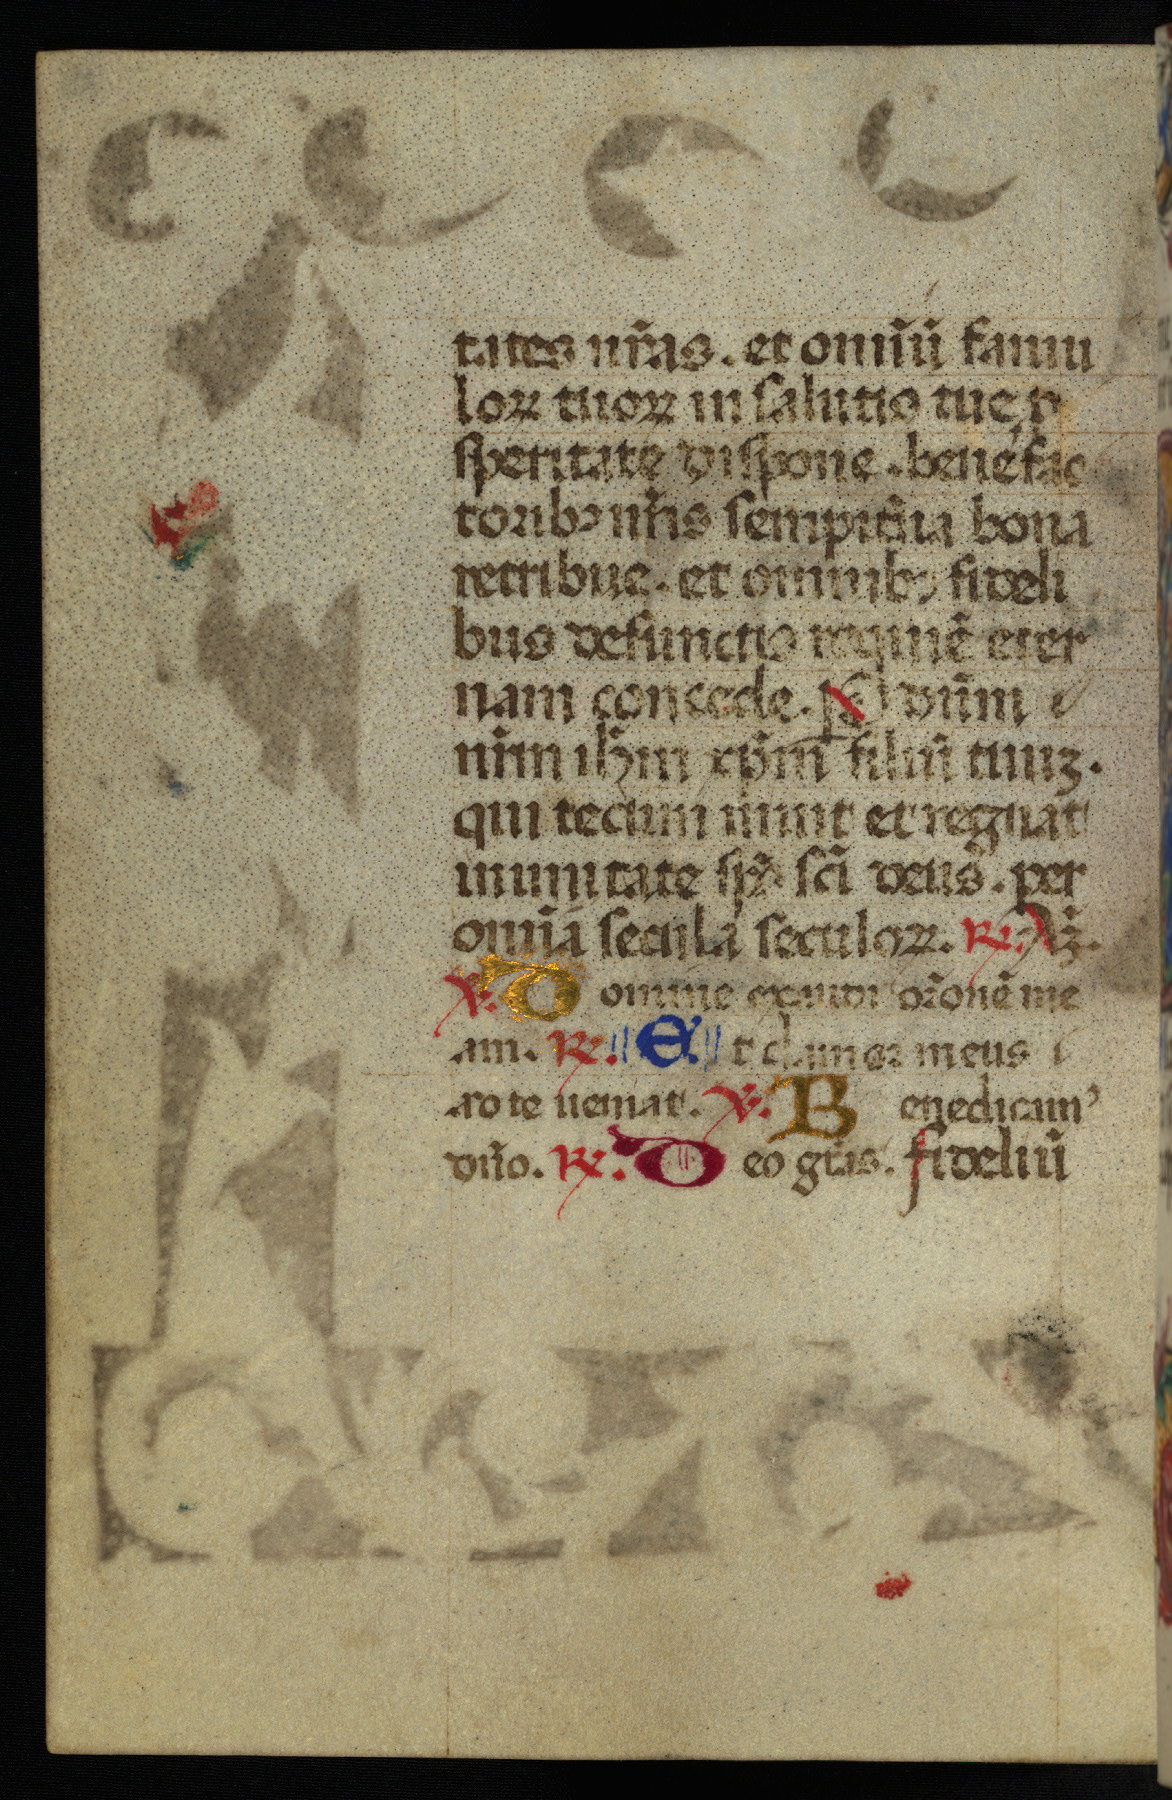 tates nr̃as. et om̃iũ famu
loꝝ tuoꝝ in salutis tue p
speritate dispone. benefac
torib; nr̃is sempit̃na bona
retribue. et omnib; fideli
bus defunctis requiẽ eter
nam concede. P dñm
nr̃m ih̃m xp̃m filiũ tuuꝫ.
qui tecum uiuit et regnat
in unitate sp̃s sc̃i deus. per
om̃ia secula seculoꝝ. ℟. Am̃.
℣. Domine exaudi or̃onẽ me
am. ℟. Et clamor meus
ad te ueniat. ℣. Benedicam'
dño. ℟. Deo gr̃as. fideliũ